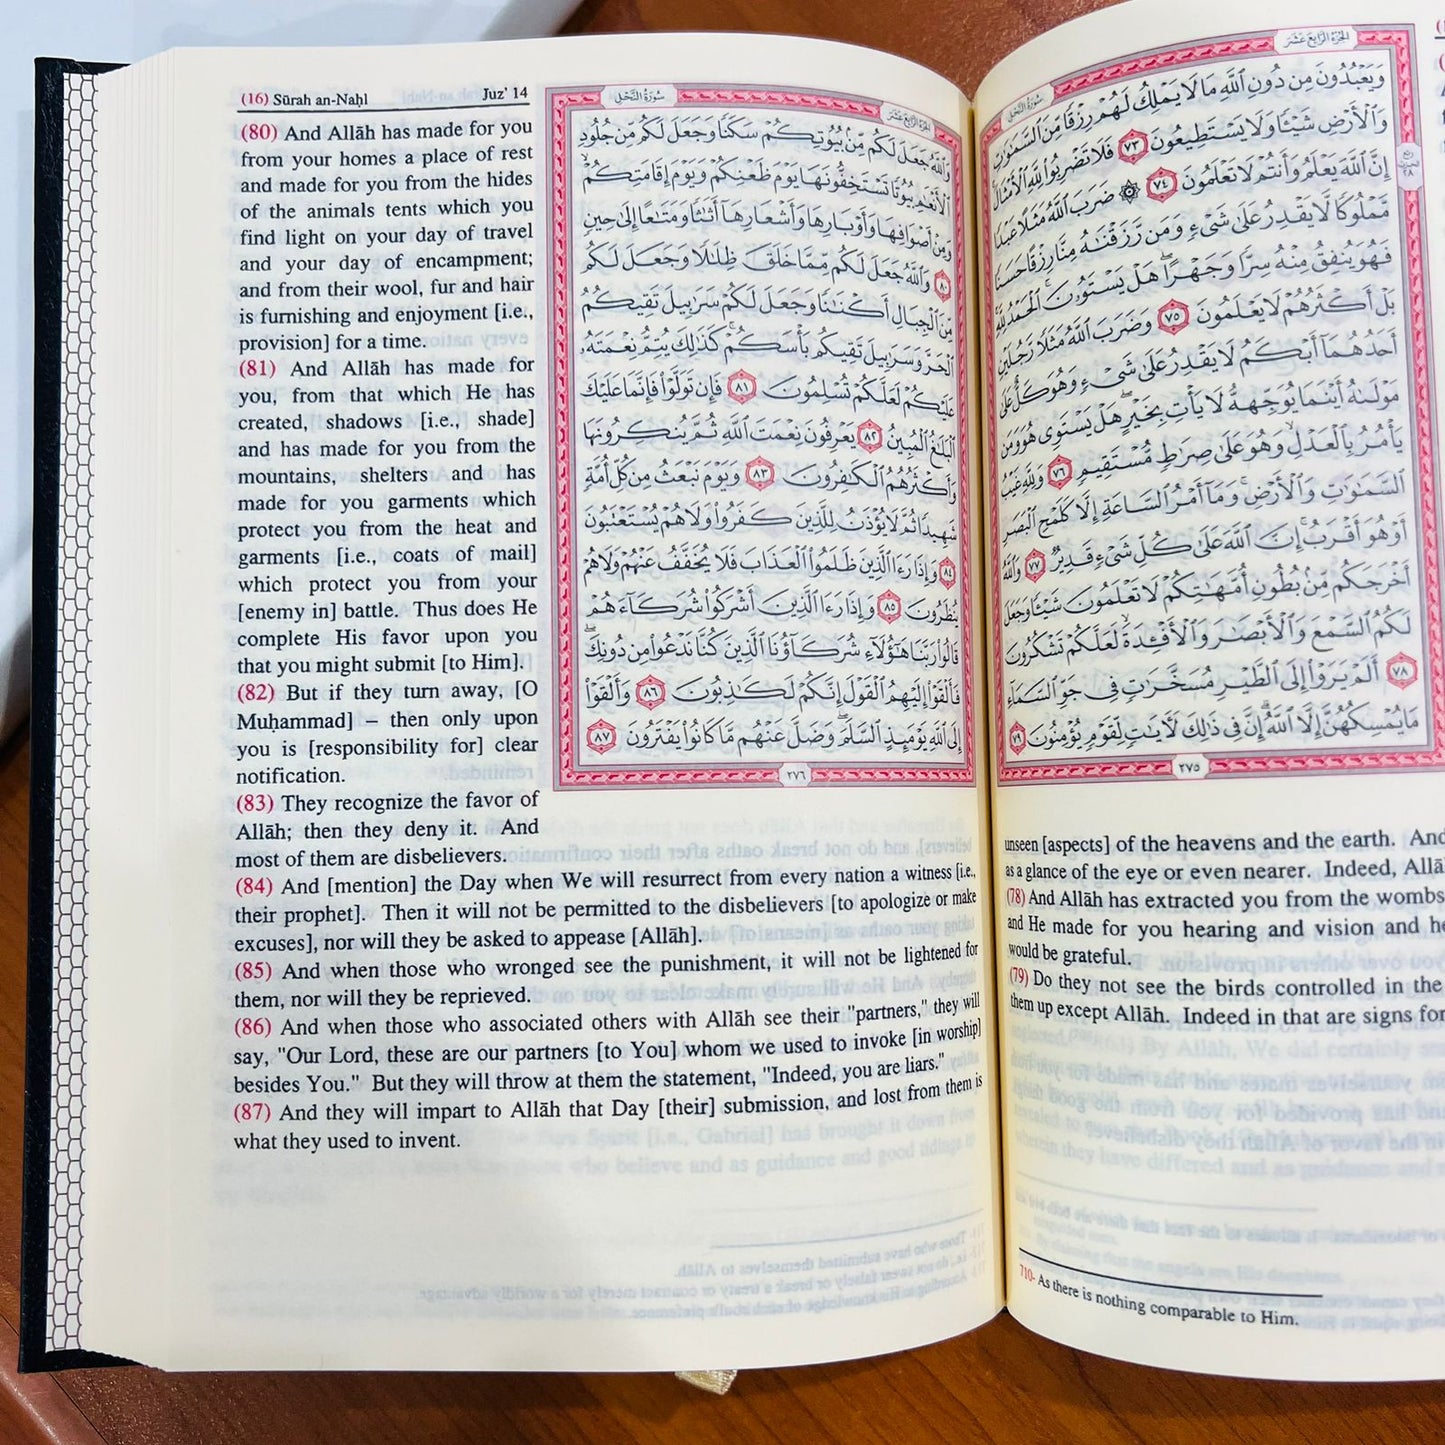 (16) Sūrah an-Naḥl Juz' 14
(80) And Allāh has made for you
from your homes a place of rest
and made for you from the hides
of the animals tents which you
find light on your day of travel
and your day of encampment;
and from their wool, fur and hair
is furnishing and enjoyment [i.e.,
provision] for a time.
(81) And Allāh has made for
you, from that which He has
created, shadows [i.e., shade]
and has made for you from the
mountains, shelters and has
made for you garments which
protect you from the heat and
garments [i.e., coats of mail]
which protect you from your
[enemy in] battle. Thus does He
complete His favor upon you
that you might submit [to Him].
(82) But if they turn away, [O
Muḥammad] – then only upon
you is [responsibility for] clear
notification.
(83) They recognize the favor of
Allāh; then they deny it. And
most of them are disbelievers.
(84) And [mention] the Day when We will resurrect from every nation a witness [i.e.,
their prophet]. Then it will not be permitted to the disbelievers [to apologize or make
excuses], nor will they be asked to appease [Allāh].
(85) And when those who wronged see the punishment, it will not be lightened for
them, nor will they be reprieved.
(86) And when those who associated others with Allāh see their "partners," they will
say, "Our Lord, these are our partners [to You] whom we used to invoke [in worship]
besides You." But they will throw at them the statement, "Indeed, you are liars."
(87) And they will impart to Allāh that Day [their] submission, and lost from them is
what they used to invent.
سُورَةُ النَّحْلِ الجُزْءُ الرَّابِعَ عَشَرَ
وَاللَّهُ جَعَلَ لَكُم مِّنۢ بُيُوتِكُمْ سَكَنًا وَجَعَلَ لَكُم مِّن جُلُودِ
ٱلْأَنْعَٰمِ بُيُوتًا تَسْتَخِفُّونَهَا يَوْمَ ظَعْنِكُمْ وَيَوْمَ إِقَامَتِكُمْ ۙ
وَمِنْ أَصْوَافِهَا وَأَوْبَارِهَا وَأَشْعَارِهَآ أَثَٰثًا وَمَتَٰعًا إِلَىٰ حِينٍ
٨٠ وَٱللَّهُ جَعَلَ لَكُم مِّمَّا خَلَقَ ظِلَٰلًا وَجَعَلَ لَكُم
مِّنَ ٱلْجِبَالِ أَكْنَٰنًا وَجَعَلَ لَكُمْ سَرَٰبِيلَ تَقِيكُمُ
ٱلْحَرَّ وَسَرَٰبِيلَ تَقِيكُم بَأْسَكُمْ ۚ كَذَٰلِكَ يُتِمُّ نِعْمَتَهُۥ
عَلَيْكُمْ لَعَلَّكُمْ تُسْلِمُونَ ٨١ فَإِن تَوَلَّوْا۟ فَإِنَّمَا عَلَيْكَ
ٱلْبَلَٰغُ ٱلْمُبِينُ ٨٢ يَعْرِفُونَ نِعْمَتَ ٱللَّهِ ثُمَّ يُنكِرُونَهَا
وَأَكْثَرُهُمُ ٱلْكَٰفِرُونَ ٨٣ وَيَوْمَ نَبْعَثُ مِن كُلِّ أُمَّةٍ
شَهِيدًا ثُمَّ لَا يُؤْذَنُ لِلَّذِينَ كَفَرُوا۟ وَلَا هُمْ يُسْتَعْتَبُونَ
٨٤ وَإِذَا رَءَا ٱلَّذِينَ ظَلَمُوا۟ ٱلْعَذَابَ فَلَا يُخَفَّفُ عَنْهُمْ وَلَا هُمْ
يُنظَرُونَ ٨٥ وَإِذَا رَءَا ٱلَّذِينَ أَشْرَكُوا۟ شُرَكَآءَهُمْ
قَالُوا۟ رَبَّنَا هَٰٓؤُلَآءِ شُرَكَآؤُنَا ٱلَّذِينَ كُنَّا نَدْعُوا۟ مِن دُونِكَ ۖ
فَأَلْقَوْا۟ إِلَيْهِمُ ٱلْقَوْلَ إِنَّكُمْ لَكَٰذِبُونَ ٨٦ وَأَلْقَوْا۟
إِلَى ٱللَّهِ يَوْمَئِذٍ ٱلسَّلَمَ ۖ وَضَلَّ عَنْهُم مَّا كَانُوا۟ يَفْتَرُونَ ٨٧
٢٧٦
سُورَةُ النَّحْلِ الجُزْءُ الرَّابِعَ عَشَرَ
وَيَعْبُدُونَ مِن دُونِ ٱللَّهِ مَا لَا يَمْلِكُ لَهُمْ رِزْقًا مِّنَ ٱلسَّمَٰوَٰتِ
وَٱلْأَرْضِ شَيْـًٔا وَلَا يَسْتَطِيعُونَ ٧٣ فَلَا تَضْرِبُوا۟ لِلَّهِ ٱلْأَمْثَالَ ۚ
إِنَّ ٱللَّهَ يَعْلَمُ وَأَنتُمْ لَا تَعْلَمُونَ ٧٤ ۞ ضَرَبَ ٱللَّهُ مَثَلًا عَبْدًا
مَّمْلُوكًا لَّا يَقْدِرُ عَلَىٰ شَىْءٍ وَمَن رَّزَقْنَٰهُ مِنَّا رِزْقًا حَسَنًا
فَهُوَ يُنفِقُ مِنْهُ سِرًّا وَجَهْرًا ۖ هَلْ يَسْتَوُۥنَ ۚ ٱلْحَمْدُ لِلَّهِ ۚ
بَلْ أَكْثَرُهُمْ لَا يَعْلَمُونَ ٧٥ وَضَرَبَ ٱللَّهُ مَثَلًا رَّجُلَيْنِ
أَحَدُهُمَآ أَبْكَمُ لَا يَقْدِرُ عَلَىٰ شَىْءٍ وَهُوَ كَلٌّ عَلَىٰ
مَوْلَىٰهُ أَيْنَمَا يُوَجِّههُّ لَا يَأْتِ بِخَيْرٍ ۖ هَلْ يَسْتَوِى هُوَ وَمَن
يَأْمُرُ بِٱلْعَدْلِ ۙ وَهُوَ عَلَىٰ صِرَٰطٍ مُّسْتَقِيمٍ ٧٦ وَلِلَّهِ غَيْبُ
ٱلسَّمَٰوَٰتِ وَٱلْأَرْضِ ۚ وَمَآ أَمْرُ ٱلسَّاعَةِ إِلَّا كَلَمْحِ ٱلْبَصَرِ
أَوْ هُوَ أَقْرَبُ ۚ إِنَّ ٱللَّهَ عَلَىٰ كُلِّ شَىْءٍ قَدِيرٌ ٧٧ وَٱللَّهُ
أَخْرَجَكُم مِّنۢ بُطُونِ أُمَّهَٰتِكُمْ لَا تَعْلَمُونَ شَيْـًٔا وَجَعَلَ
لَكُمُ ٱلسَّمْعَ وَٱلْأَبْصَٰرَ وَٱلْأَفْـِٔدَةَ ۙ لَعَلَّكُمْ تَشْكُرُونَ
٧٨ أَلَمْ يَرَوْا۟ إِلَى ٱلطَّيْرِ مُسَخَّرَٰتٍ فِى جَوِّ ٱلسَّمَآءِ
مَا يُمْسِكُهُنَّ إِلَّا ٱللَّهُ ۗ إِنَّ فِى ذَٰلِكَ لَـَٔايَٰتٍ لِّقَوْمٍ يُؤْمِنُونَ ٧٩
٢٧٥
unseen [aspects] of the heavens and the earth. And
as a glance of the eye or even nearer. Indeed, Allā
(78) And Allāh has extracted you from the wombs
and He made for you hearing and vision and he
would be grateful.
(79) Do they not see the birds controlled in the
them up except Allāh. Indeed in that are signs for
710- As there is nothing comparable to Him.